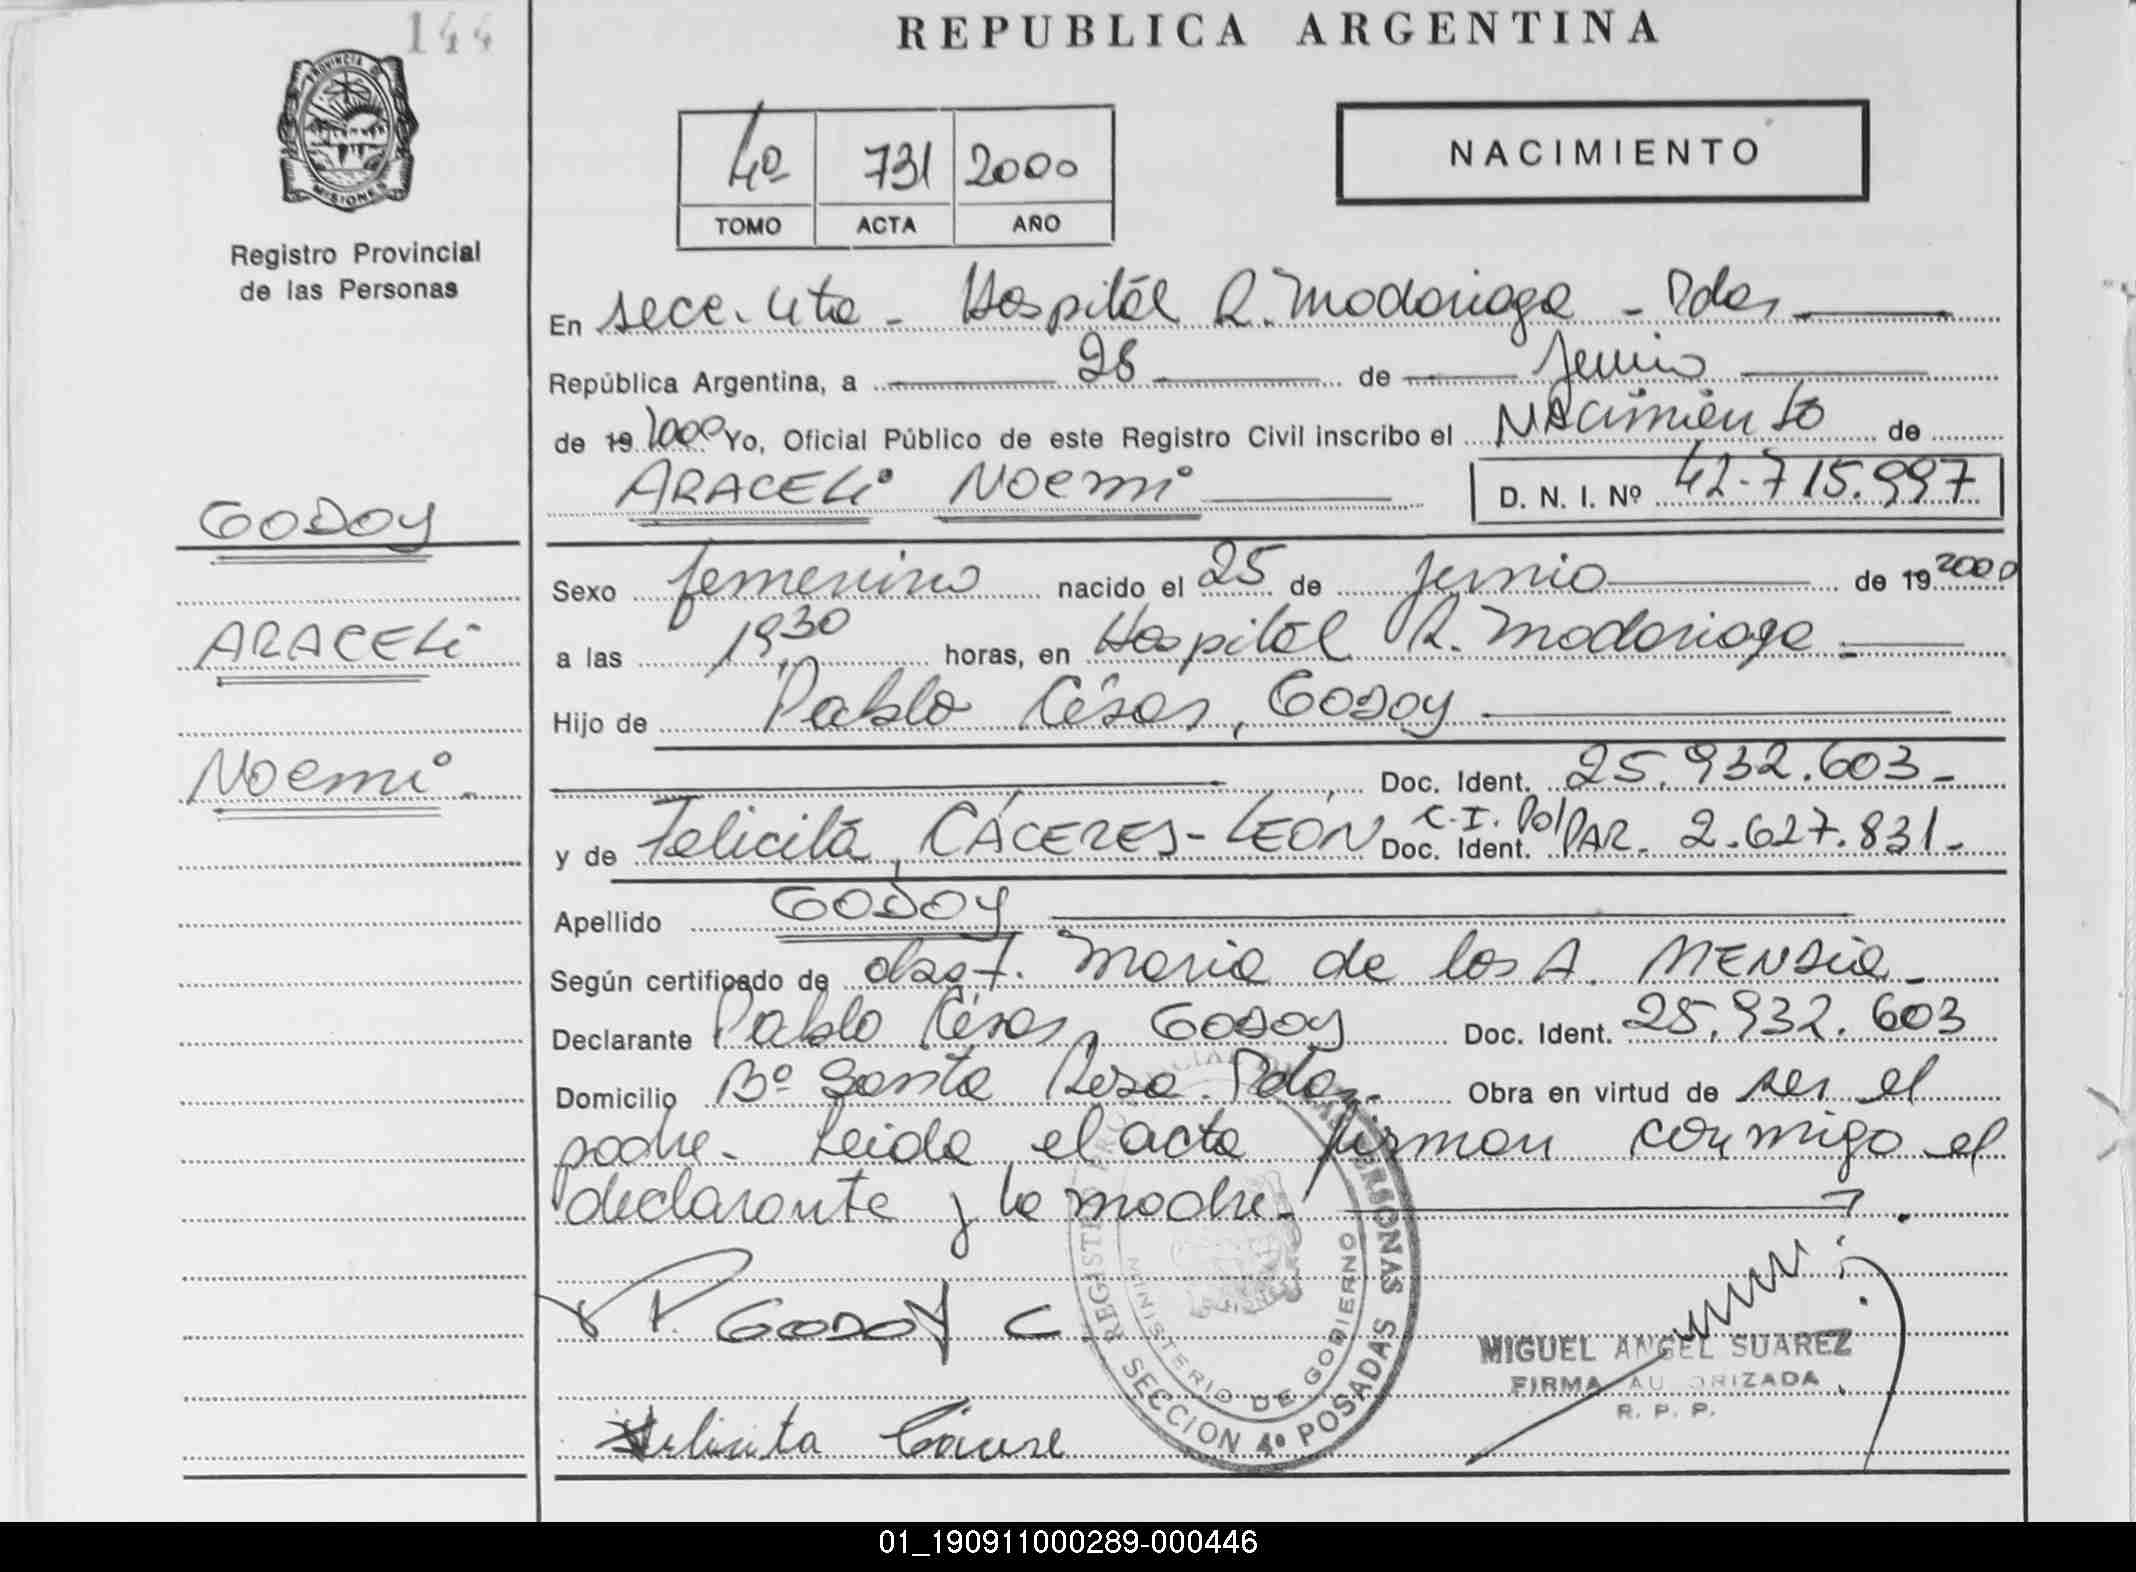 144
REPUBLICA ARGENTINA
PROVINCIA DE
MISIONES
Registro Provincial
de las Personas
4º 731 2000
TOMO ACTA AÑO
NACIMIENTO
En secc. 4ta - Hospital R. Madariaga - Pdas
República Argentina, a 28 de Junio
de 19 2000 Yo, Oficial Público de este Registro Civil inscribo el NAcimiento de
ARACELi Noemi D. N. I. Nº 42.715.997
GODOY
ARACELi
Noemi -
Sexo femenino nacido el 25 de junio de 19 2000
a las 19,30 horas, en Hospital R. Madariaga -
Hijo de Pablo César, GODOY
Doc. Ident. 25.932.603-
y de Felicita, CÁCERES-LEÓN Doc. Ident. C.I. Pol PAR. 2.627.831-
Apellido GODOY
Según certificado de obst. Maria de los A. MENDia -
Declarante Pablo César, GODOY Doc. Ident. 25.932.603
Domicilio Bº Santa Rosa. Pdas. Obra en virtud de ser el
padre - Leida el acta firman conmigo el
declarante y la madre -
P. GODOY C
Felicita
REGISTRO PROVINCIAL DE LAS PERSONAS
MINISTERIO DE GOBIERNO
SECCION 4º POSADAS
MIGUEL ANGEL SUAREZ
FIRMA AUTORIZADA
R. P. P.
01_190911000289-000446